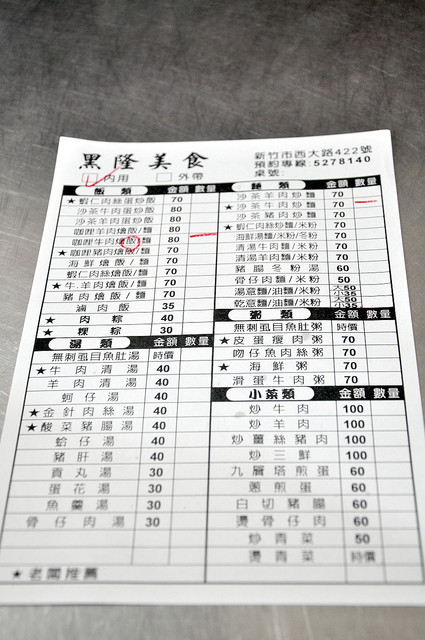 黑隆美食
新竹市西大路422號
預約專線:5278140
內用 外帶
桌號:
飯類 金額 數量
★蝦仁肉絲蛋炒飯 70
沙茶牛肉蛋炒飯 80
沙茶羊肉蛋炒飯 80
咖哩羊肉燴飯/麵 80
咖哩牛肉燴飯/麵 80
★咖哩豬肉燴飯/麵 70
海鮮燴飯/麵 70
蝦仁肉絲燴飯/麵 70
★牛.羊肉燴飯/麵 70
豬肉燴飯/麵 70
滷肉飯 35
★肉粽 40
★粿粽 30
湯類 金額 數量
無刺虱目魚肚湯 時價
★牛肉清湯 40
羊肉清湯 40
蚵仔湯 40
★金針肉絲湯 40
★酸菜豬腸湯 40
蛤仔湯 40
豬肝湯 40
貢丸湯 30
蛋花湯 30
魚羹湯 30
骨仔肉湯 30
★老闆推薦
麵類 金額 數量
沙茶羊肉炒麵 70
★沙茶牛肉炒麵 70
★沙茶豬肉炒麵 70
★蝦仁肉絲炒麵/米粉 70
海鮮湯麵/米粉/冬粉 70
清湯牛肉麵/米粉 70
清湯羊肉麵/米粉 70
豬腸冬粉湯 60
骨仔肉麵/米粉 50
湯意麵/油麵/米粉 大50
乾意麵/油麵/米粉
粥類 金額 數量
無刺虱目魚肚粥 時價
★皮蛋瘦肉粥 70
吻仔魚肉絲粥 70
★海鮮粥 70
滑蛋牛肉粥 70
小菜類 金額 數量
炒牛肉 100
炒羊肉 100
炒薑絲豬肉 100
炒三鮮 100
九層塔煎蛋 60
蔥煎蛋 60
白切豬腸 60
燙骨仔肉 60
炒青菜 50
燙青菜 時價